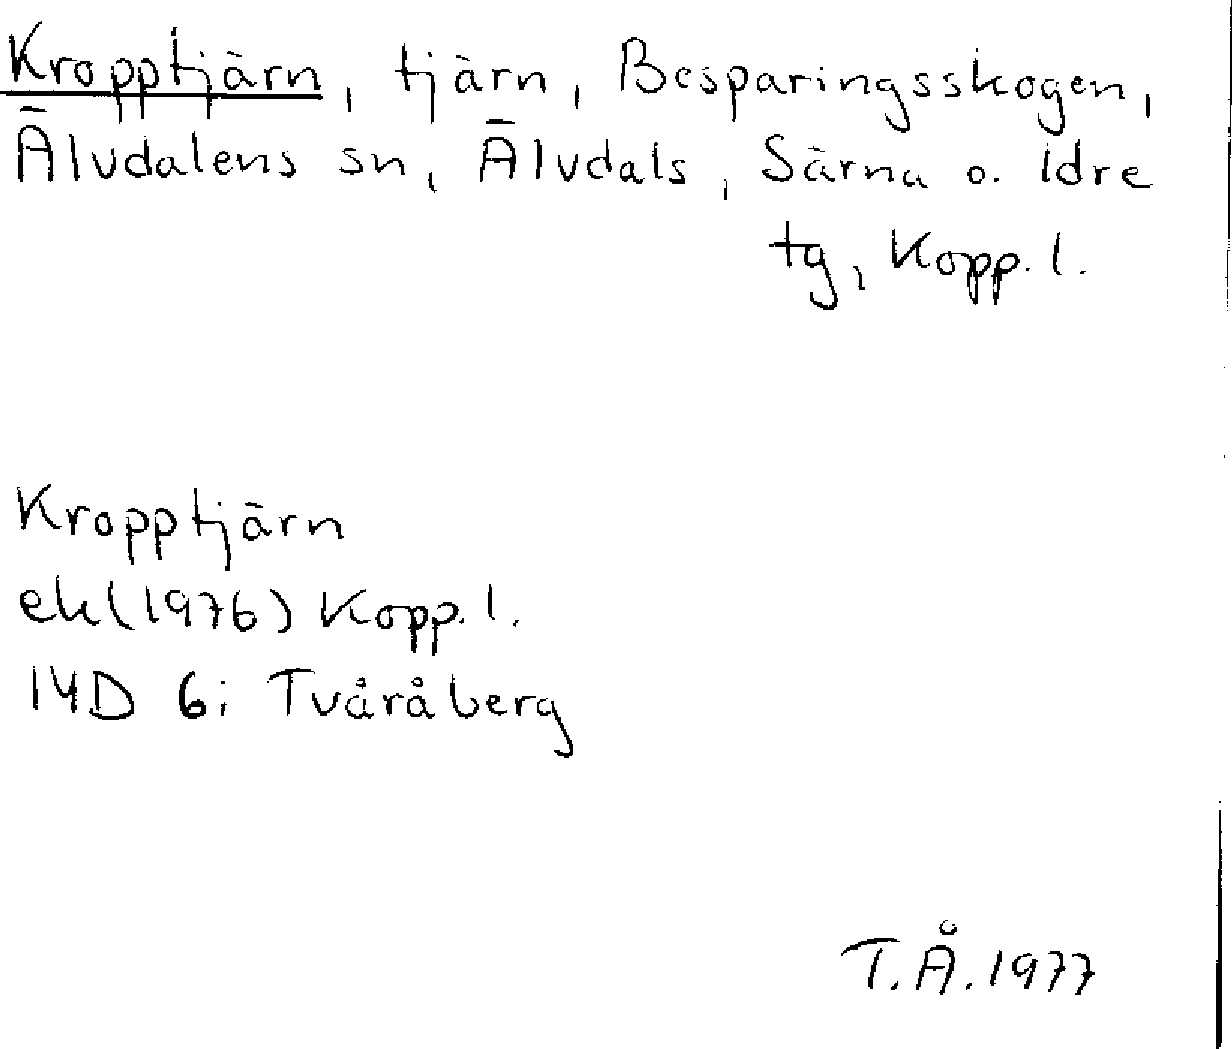 Kropptjärn, tjärn, Besparingsskogen,
Älvdalens sn, Älvdals, Särna o. Idre
tg, Kopp. l.
Kropptjärn
ek(1976) Kopp. l.
14D 6i Tvåråberg
T.Å.1977